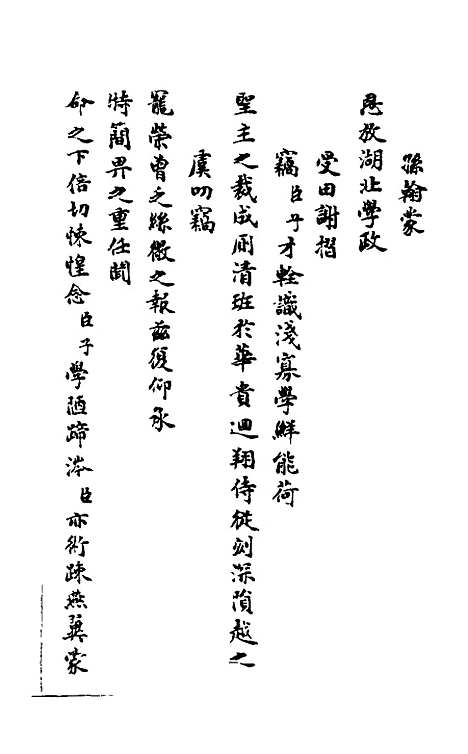 孫翰蒙
恩放湖北學政
受田謝摺
竊臣子才輇識淺寡學鮮能荷
聖主之裁成厠清班於華貴迴翔侍從刻深隕越之
虞叨竊
寵榮曾乏絲微之報茲復仰承
特簡畀之重任聞
命之下倍切悚惶念臣子學陋蹄涔臣亦術疎燕翼蒙